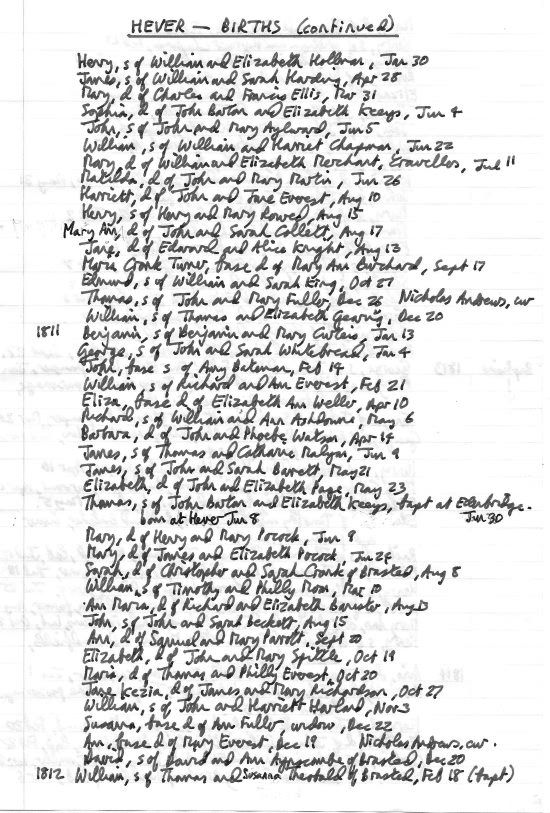 HEVER — BIRTHS (continued)
Henry, s of William and Elizabeth Hollman, Jan 30
James, s of William and Sarah Harding, Apr 28
Mary, d of Charles and Francis Ellis, Mar 31
Sophia, d of John Barton and Elizabeth Keeys, Jun 4
John, s of John and Mary Aylward, Jun 5
William, s of William and Harriet Chapman, Jun 22
Mary, d of William and Elizabeth Merchant, travellers, Jul 11
Matilda, d of John and Mary Martin, Jun 26
Harriett, d of John and Jane Everest, Aug 10
Henry, s of Henry and Mary Rowed, Aug 15
Mary Ann, d of John and Sarah Collett, Aug 17
Jane, d of Edward and Alice Knight, Aug 13
Maria Cronk Turner, base d of Mary Ann Burchard, Sept 17
Edmund, s of William and Sarah King, Oct 27
Thomas, s of John and Mary Fuller, Dec 26 Nicholas Andrews, cur
William, s of Thomas and Elizabeth Gearing, Dec 20
1811 Benjamin, s of Benjamin and Mary Curteis, Jan 13
George, s of John and Sarah Whitebread, Jan 4
John, base s of Amy Bateman, Feb 14
William, s of Richard and Ann Everest, Feb 21
Eliza, base d of Elizabeth Ann Weller, Apr 10
Richard, s of William and Ann Ashdowne, May 6
Barbara, d of John and Phoebe Watson, Apr 14
James, s of Thomas and Catharine Malyan, Jun 9
James, s of John and Sarah Barrett, May 21
Elizabeth, d of John and Elizabeth Page, May 23
Thomas, s of John Barton and Elizabeth Keeys, bapt at Edenbridge.
born at Hever Jun 8 Jun 30
Mary, d of Henry and Mary Pocock, Jun 9
Mary, d of James and Elizabeth Pocock, Jun 24
Sarah, d of Christopher and Sarah Cronk of Brasted, Aug 8
William, s of Timothy and Philly Moon, Mar 10
Ann Maria, d of Richard and Elizabeth Banister, Aug 13
John, s of John and Sarah Beckett, Aug 15
Ann, d of Samuel and Mary Parrott, Sept 20
Elizabeth, d of John and Mary Spittle, Oct 19
Maria, d of Thomas and Philly Everest, Oct 20
Jane Kezia, d of James and Mary Richardson, Oct 27
William, s of John and Harriett Harland, Nov 3
Susanna, base d of Ann Fuller, widow, Dec 22
Ann, base d of Mary Everest, Dec 19 Nicholas Andrews, cur.
David, s of David and Ann of Brasted, Dec 20
1812 William, s of Thomas and Susanna Theobald of Brasted, Feb 18 (bapt)